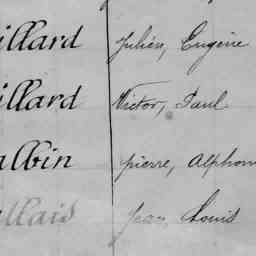 illard Julien, Eugène
illard Victor, Paul
albin pierre, Alphon
llais Jean Louis